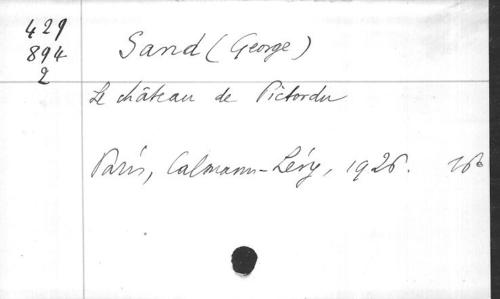 429
894
2
Sand (George)
Le château de Pictordu
Paris, Calmann-Lévy, 1926. 16°